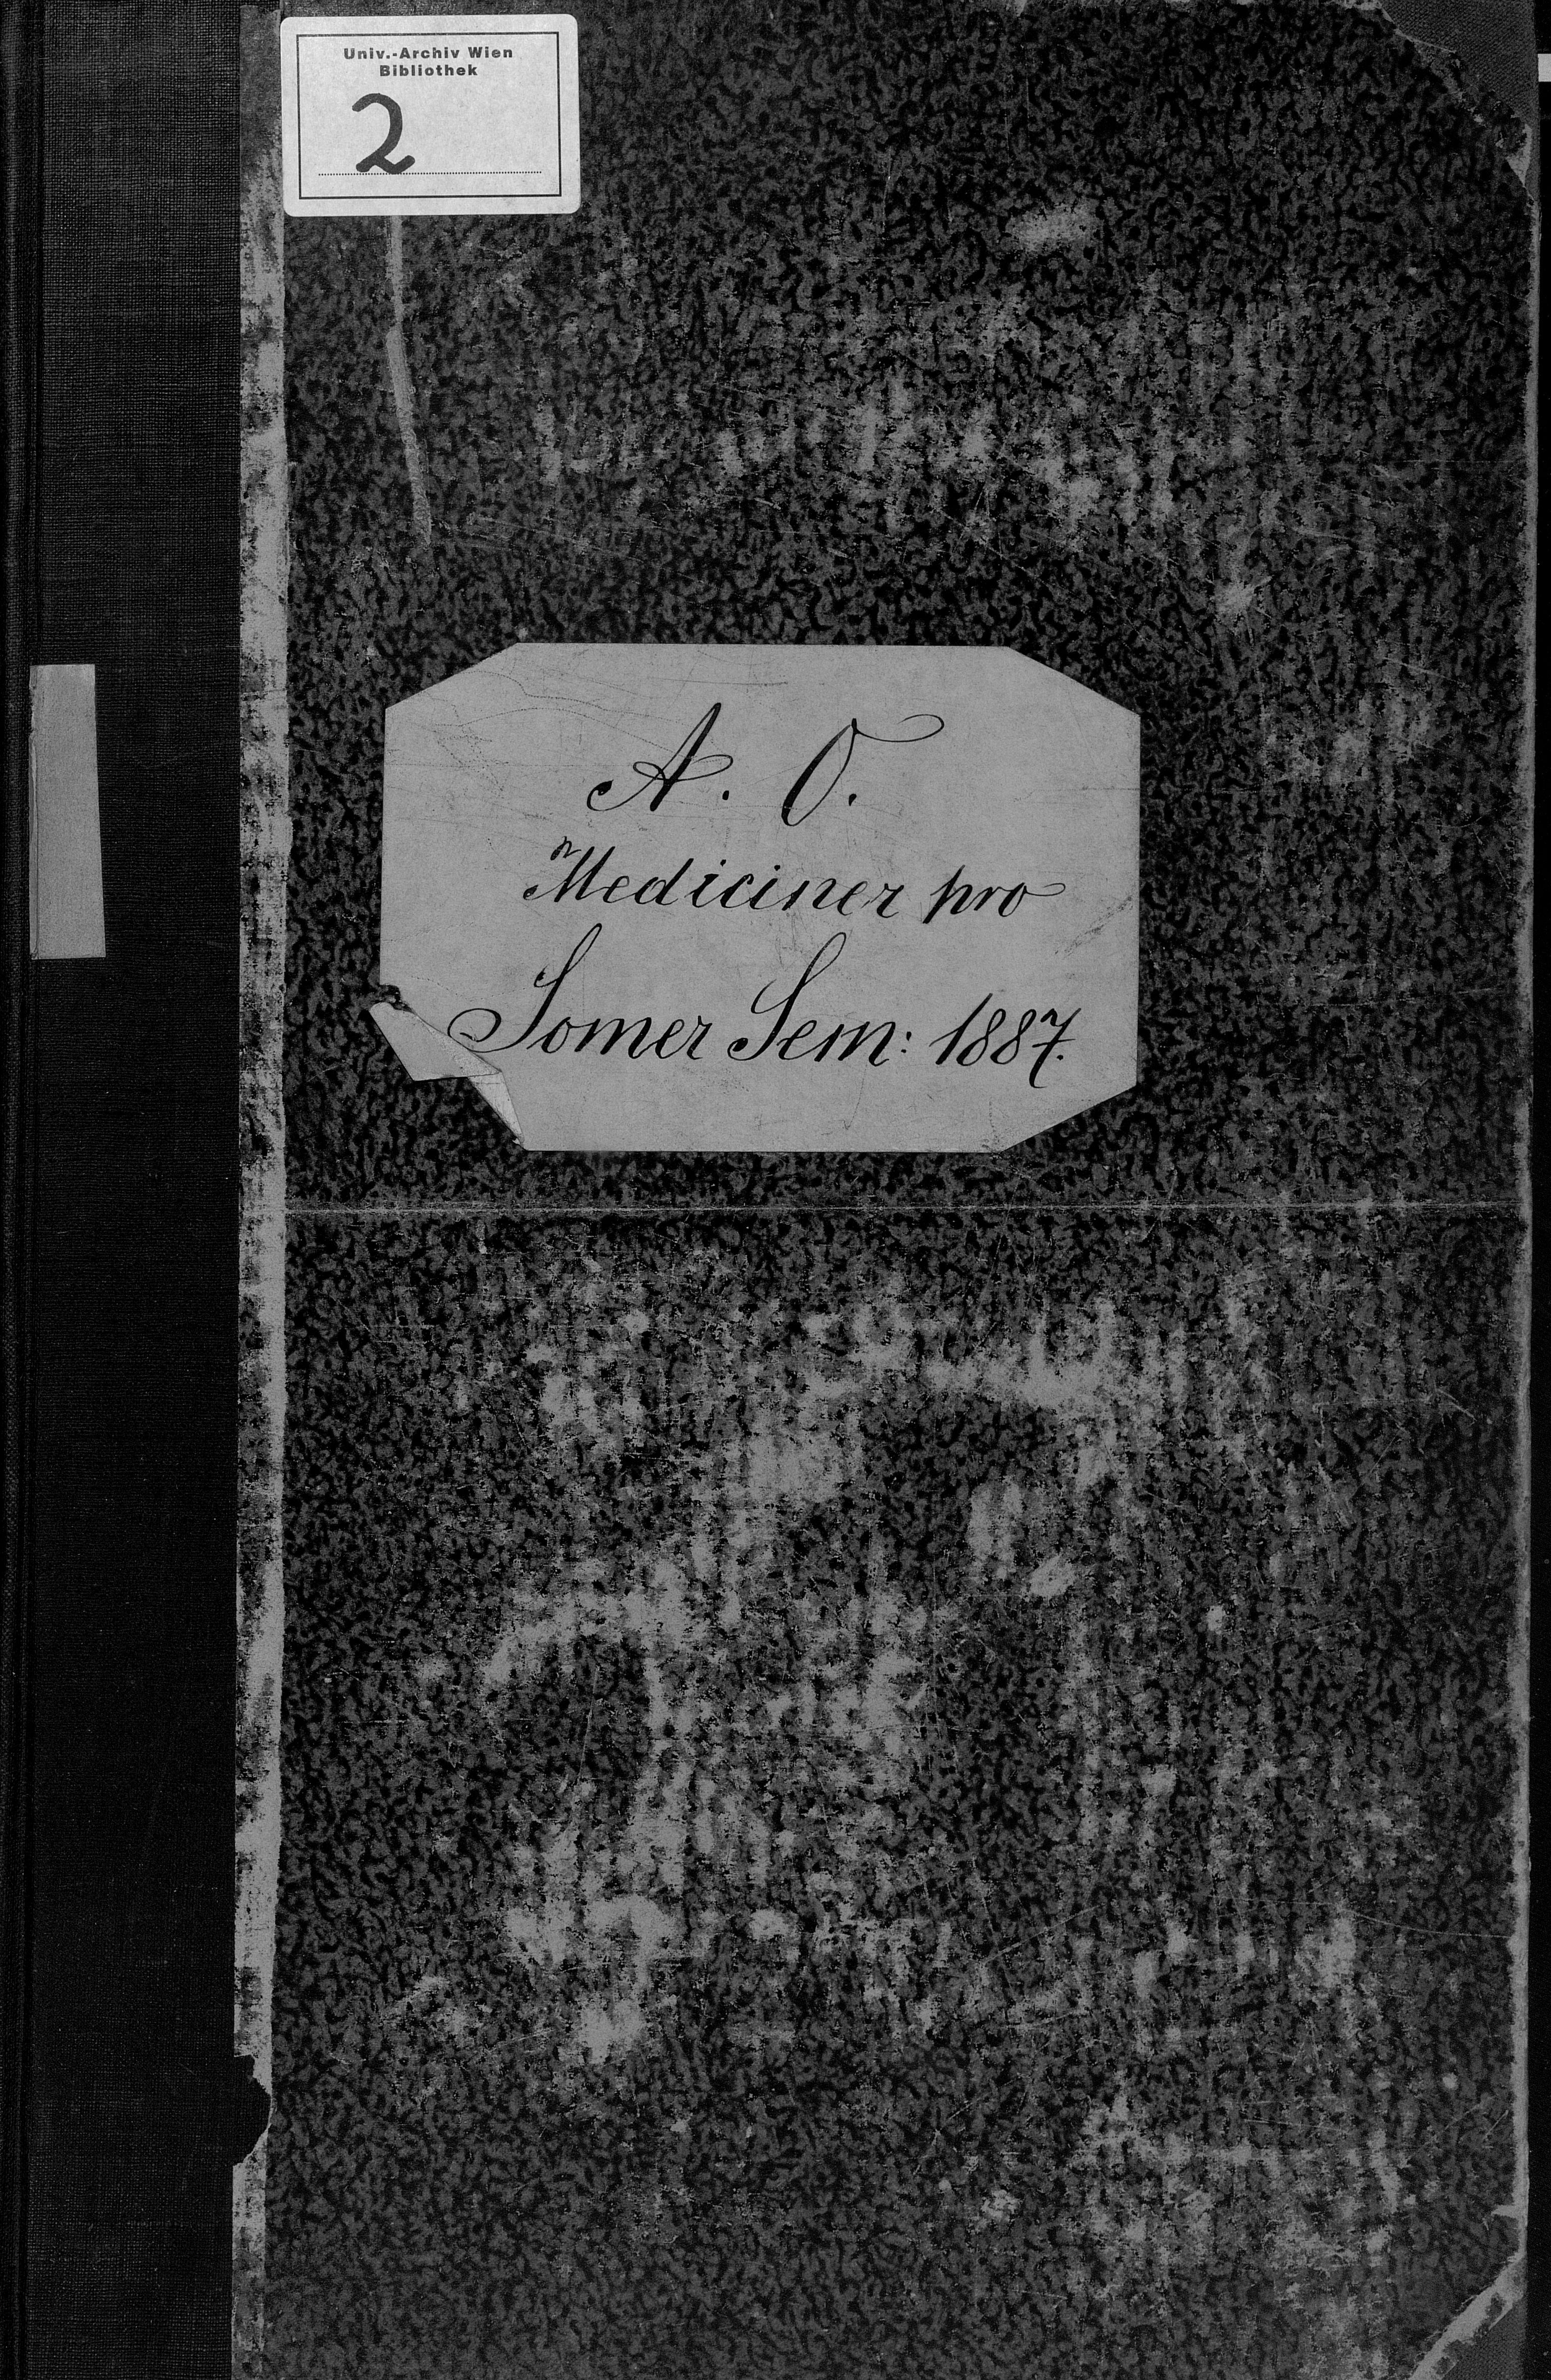 Univ.-Archiv Wien
Bibliothek
2
A. O.
Mediciner pro
Somer Sem: 1887.